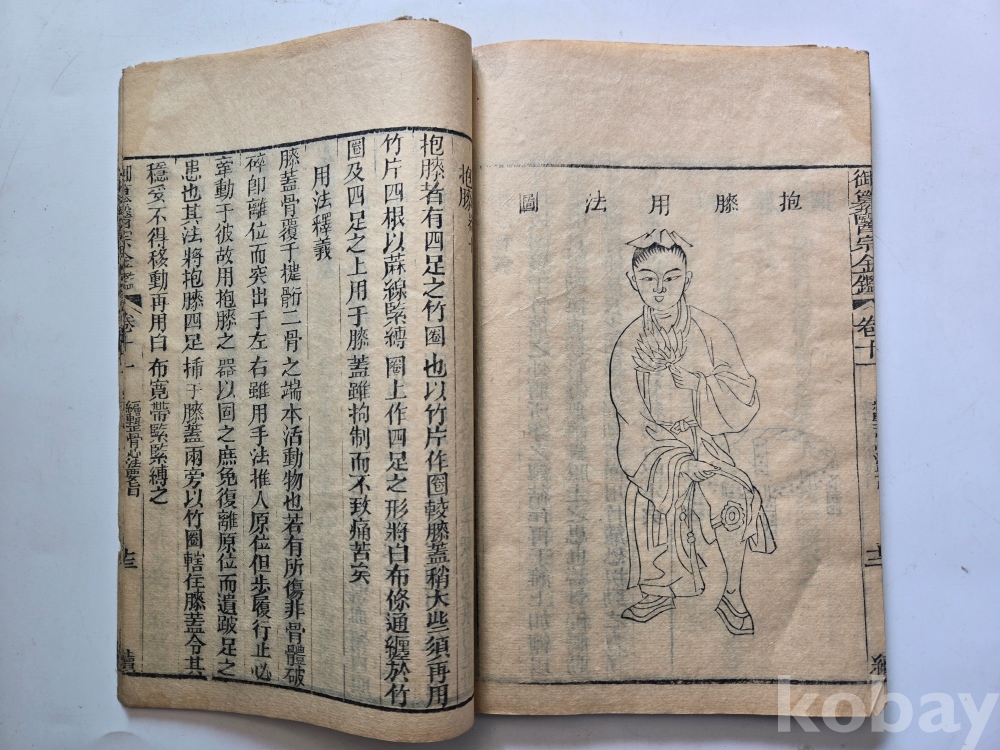 御纂醫宗金鑑 卷十
抱膝用法圖
抱膝
抱膝者有四足之竹圈也以竹片作圈較膝蓋稍大些須再用
竹片四根以蔴線緊縛圈上作四足之形將白布條通纏於竹
圈及四足之上用于膝蓋雖拘制而不致痛苦矣
用法釋義
膝蓋骨覆于楗骱二骨之端本活動物也若有所傷非骨體破
碎即離位而突出于左右雖用手法推入原位但步履行止必
牽動于彼故用抱膝之器以固之庶免復離原位而遺跛足之
患也其法將抱膝四足插于膝蓋兩旁以竹圈轄住膝蓋令其
穩妥不得移動再用白布寬帶緊緊縛之
御纂醫宗金鑑 卷十一 編整骨心法要旨 十三 續
kobay